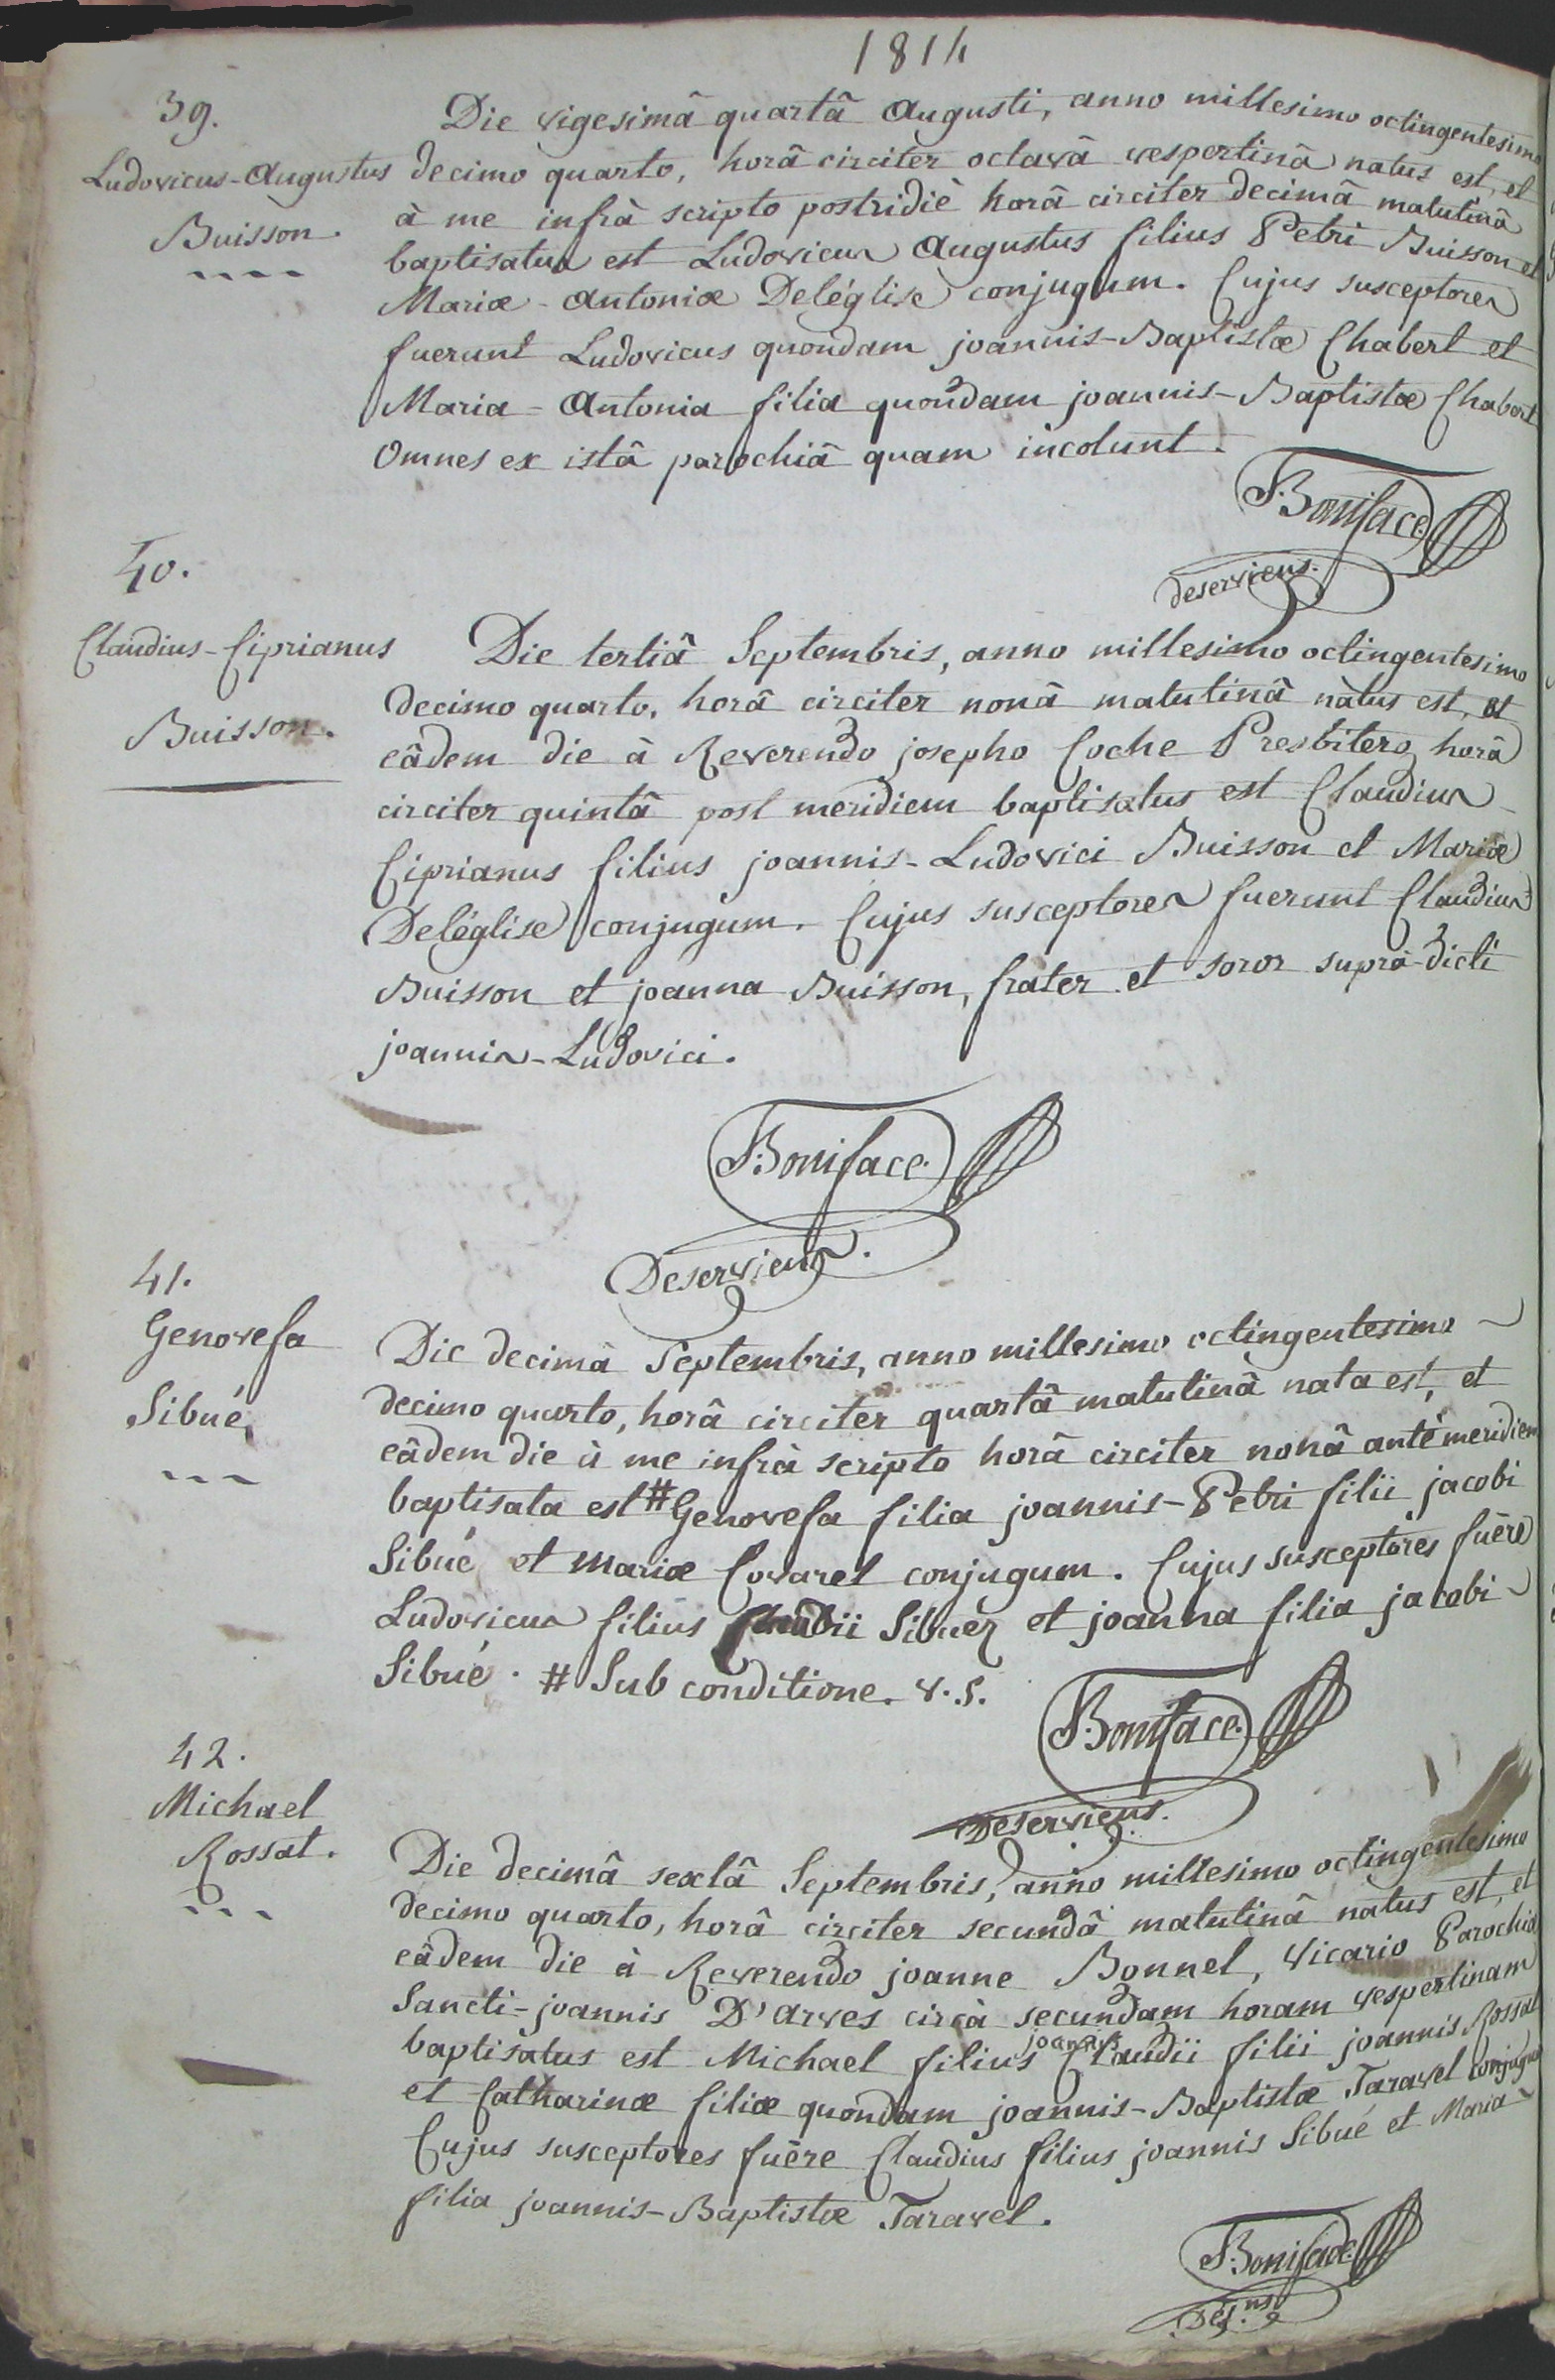 1814
39.
Ludovicus-Augustus
Buisson.
Die vigesimâ quartâ Augusti, anno millesimo octingentesimo
decimo quarto, horâ circiter octavâ vespertinâ natus est, et
à me infrà scripto postridiè horâ circiter decimâ matutinâ
baptisatus est Ludovicus Augustus filius Petri Buisson et
Mariæ-Antoniæ Deléglise conjugum. Cujus susceptores
fuerunt Ludovicus quondam joannis-Baptistæ Chabert et
Maria-Antonia filia quondam joannis-Baptistæ Chabert
Omnes ex istâ parochiâ quam incolunt.
Boniface
deserviens.
40.
Claudius-Ciprianus
Buisson.
Die tertiâ Septembris, anno millesimo octingentesimo
decimo quarto, horâ circiter nonâ matutinâ natus est, et
eâdem die à Reverendo josepho Coche Presbitero, horâ
circiter quintâ post meridiem baptisatus est Claudius-
Ciprianus filius joannis-Ludovici Buisson et Mariæ
Deléglise conjugum. Cujus susceptores fuerunt Claudius
Buisson et joanna Buisson, frater et soror suprà-dicti
joannis-Ludovici.
Boniface.
Deserviens.
41.
Genovefa
Sibué,
Die decimâ Septembris, anno millesimo octingentesimo
decimo quarto, horâ circiter quartâ matutinâ nata est, et
eâdem die à me infrà scripto horâ circiter nonâ antè meridiem
baptisata est # Genovefa filia joannis-Petri filii jacobi
Sibué et Mariæ Covarel conjugum. Cujus susceptores fuêre
Ludovicus filius Claudii Sibuez et joanna filia jacobi
Sibué. # Sub conditione. v.s.
Boniface.
Deserviens.
42.
Michael
Rossat.
Die decimâ sextâ Septembris, anno millesimo octingentesimo
decimo quarto, horâ circiter secundâ matutinâ natus est, et
eâdem die à Reverendo joanne Bonnel, Vicario Parochiæ
Sancti-joannis D'arves circà secundam horam vespertinam
baptisatus est Michael filius joannis Claudii filii joannis Rossat
et Catharinæ filiæ quondam joannis-Baptistæ Taravel conjugum
Cujus susceptores fuêre Claudius filius joannis Sibué et Maria
filia joannis-Baptistæ Taravel.
Boniface
Des.ns